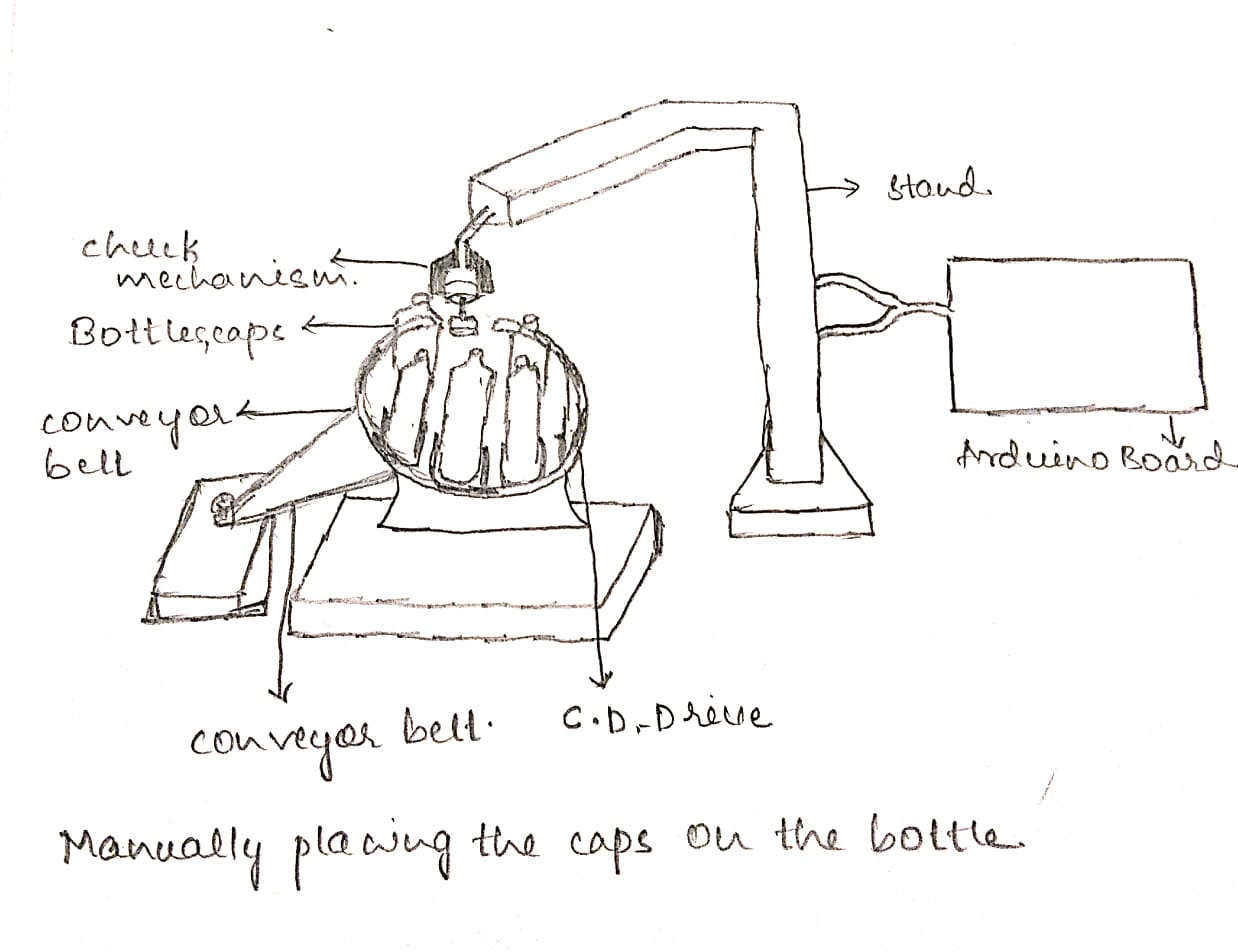 stand.
chuck
mechanism.
Bottles,caps
conveyor
belt
Arduino Board
conveyor belt.
C.D.-Drive
Manually placing the caps on the bottle.